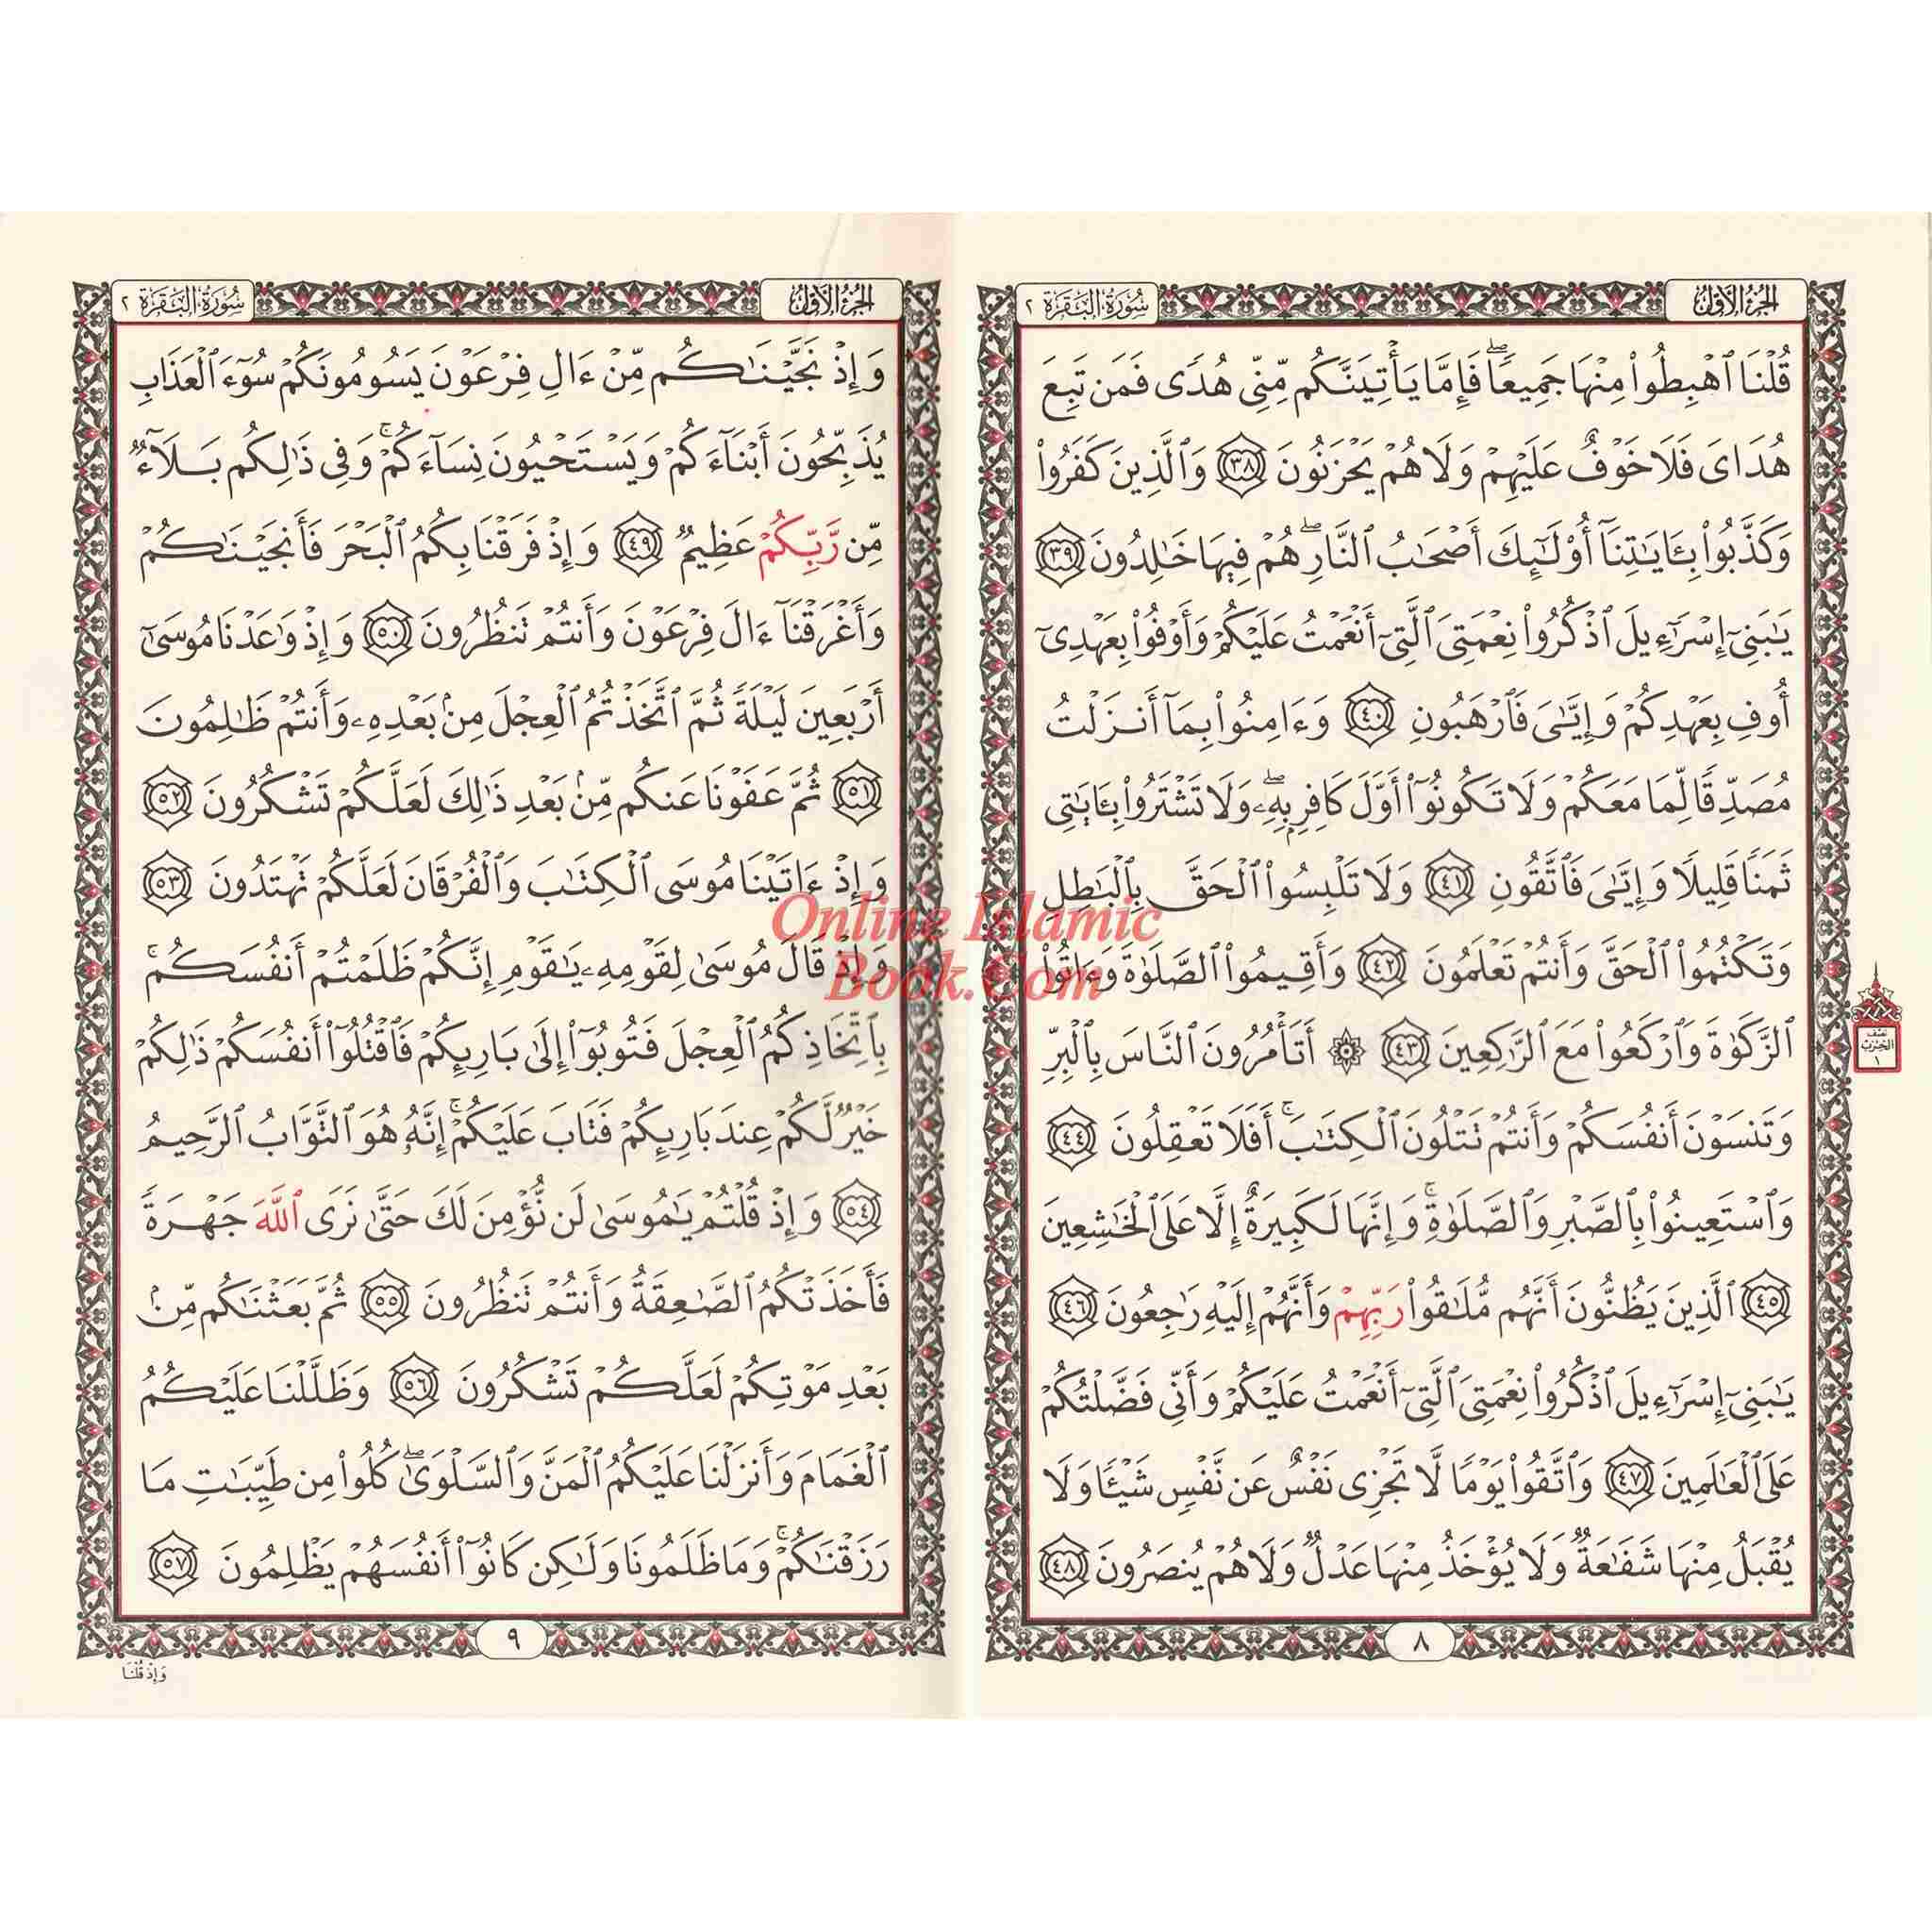 الجزء الأول
سُورَةُ البَقَرَةِ ٢
قُلۡنَا ٱهۡبِطُواْ مِنۡهَا جَمِيعٗاۖ فَإِمَّا يَأۡتِيَنَّكُم مِّنِّي هُدٗى فَمَن تَبِعَ
هُدَايَ فَلَا خَوۡفٌ عَلَيۡهِمۡ وَلَا هُمۡ يَحۡزَنُونَ ٣٨ وَٱلَّذِينَ كَفَرُواْ
وَكَذَّبُواْ بِـَٔايَٰتِنَآ أُوْلَٰٓئِكَ أَصۡحَٰبُ ٱلنَّارِۖ هُمۡ فِيهَا خَٰلِدُونَ ٣٩
يَٰبَنِيٓ إِسۡرَٰٓءِيلَ ٱذۡكُرُواْ نِعۡمَتِيَ ٱلَّتِيٓ أَنۡعَمۡتُ عَلَيۡكُمۡ وَأَوۡفُواْ بِعَهۡدِيٓ
أُوفِ بِعَهۡدِكُمۡ وَإِيَّٰيَ فَٱرۡهَبُونِ ٤٠ وَءَامِنُواْ بِمَآ أَنزَلۡتُ
مُصَدِّقٗا لِّمَا مَعَكُمۡ وَلَا تَكُونُوٓاْ أَوَّلَ كَافِرِۭ بِهِۦۖ وَلَا تَشۡتَرُواْ بِـَٔايَٰتِي
ثَمَنٗا قَلِيلٗا وَإِيَّٰيَ فَٱتَّقُونِ ٤١ وَلَا تَلۡبِسُواْ ٱلۡحَقَّ بِٱلۡبَٰطِلِ
وَتَكۡتُمُواْ ٱلۡحَقَّ وَأَنتُمۡ تَعۡلَمُونَ ٤٢ وَأَقِيمُواْ ٱلصَّلَوٰةَ وَءَاتُواْ
ٱلزَّكَوٰةَ وَٱرۡكَعُواْ مَعَ ٱلرَّٰكِعِينَ ٤٣ ۞ أَتَأۡمُرُونَ ٱلنَّاسَ بِٱلۡبِرِّ
وَتَنسَوۡنَ أَنفُسَكُمۡ وَأَنتُمۡ تَتۡلُونَ ٱلۡكِتَٰبَۚ أَفَلَا تَعۡقِلُونَ ٤٤
وَٱسۡتَعِينُواْ بِٱلصَّبۡرِ وَٱلصَّلَوٰةِۚ وَإِنَّهَا لَكَبِيرَةٌ إِلَّا عَلَى ٱلۡخَٰشِعِينَ
٤٥ ٱلَّذِينَ يَظُنُّونَ أَنَّهُم مُّلَٰقُواْ رَبِّهِمۡ وَأَنَّهُمۡ إِلَيۡهِ رَٰجِعُونَ ٤٦
يَٰبَنِيٓ إِسۡرَٰٓءِيلَ ٱذۡكُرُواْ نِعۡمَتِيَ ٱلَّتِيٓ أَنۡعَمۡتُ عَلَيۡكُمۡ وَأَنِّي فَضَّلۡتُكُمۡ
عَلَى ٱلۡعَٰلَمِينَ ٤٧ وَٱتَّقُواْ يَوۡمٗا لَّا تَجۡزِي نَفۡسٌ عَن نَّفۡسٖ شَيۡـٔٗا وَلَا
يُقۡبَلُ مِنۡهَا شَفَٰعَةٞ وَلَا يُؤۡخَذُ مِنۡهَا عَدۡلٞ وَلَا هُمۡ يُنصَرُونَ ٤٨
٨
نصف
الحزب
١
الجزء الأول
سُورَةُ البَقَرَةِ ٢
وَإِذۡ نَجَّيۡنَٰكُم مِّنۡ ءَالِ فِرۡعَوۡنَ يَسُومُونَكُمۡ سُوٓءَ ٱلۡعَذَابِ
يُذَبِّحُونَ أَبۡنَآءَكُمۡ وَيَسۡتَحۡيُونَ نِسَآءَكُمۡۚ وَفِي ذَٰلِكُم بَلَآءٞ
مِّن رَّبِّكُمۡ عَظِيمٞ ٤٩ وَإِذۡ فَرَقۡنَا بِكُمُ ٱلۡبَحۡرَ فَأَنجَيۡنَٰكُمۡ
وَأَغۡرَقۡنَآ ءَالَ فِرۡعَوۡنَ وَأَنتُمۡ تَنظُرُونَ ٥٠ وَإِذۡ وَٰعَدۡنَا مُوسَىٰٓ
أَرۡبَعِينَ لَيۡلَةٗ ثُمَّ ٱتَّخَذۡتُمُ ٱلۡعِجۡلَ مِنۢ بَعۡدِهِۦ وَأَنتُمۡ ظَٰلِمُونَ
٥١ ثُمَّ عَفَوۡنَا عَنكُم مِّنۢ بَعۡدِ ذَٰلِكَ لَعَلَّكُمۡ تَشۡكُرُونَ ٥٢
وَإِذۡ ءَاتَيۡنَا مُوسَى ٱلۡكِتَٰبَ وَٱلۡفُرۡقَانَ لَعَلَّكُمۡ تَهۡتَدُونَ ٥٣
وَإِذۡ قَالَ مُوسَىٰ لِقَوۡمِهِۦ يَٰقَوۡمِ إِنَّكُمۡ ظَلَمۡتُمۡ أَنفُسَكُم
بِٱتِّخَاذِكُمُ ٱلۡعِجۡلَ فَتُوبُوٓاْ إِلَىٰ بَارِئِكُمۡ فَٱقۡتُلُوٓاْ أَنفُسَكُمۡ ذَٰلِكُمۡ
خَيۡرٞ لَّكُمۡ عِندَ بَارِئِكُمۡ فَتَابَ عَلَيۡكُمۡۚ إِنَّهُۥ هُوَ ٱلتَّوَّابُ ٱلرَّحِيمُ
٥٤ وَإِذۡ قُلۡتُمۡ يَٰمُوسَىٰ لَن نُّؤۡمِنَ لَكَ حَتَّىٰ نَرَى ٱللَّهَ جَهۡرَةٗ
فَأَخَذَتۡكُمُ ٱلصَّٰعِقَةُ وَأَنتُمۡ تَنظُرُونَ ٥٥ ثُمَّ بَعَثۡنَٰكُم مِّنۢ
بَعۡدِ مَوۡتِكُمۡ لَعَلَّكُمۡ تَشۡكُرُونَ ٥٦ وَظَلَّلۡنَا عَلَيۡكُمُ
ٱلۡغَمَامَ وَأَنزَلۡنَا عَلَيۡكُمُ ٱلۡمَنَّ وَٱلسَّلۡوَىٰۖ كُلُواْ مِن طَيِّبَٰتِ مَا
رَزَقۡنَٰكُمۡۚ وَمَا ظَلَمُونَا وَلَٰكِن كَانُوٓاْ أَنفُسَهُمۡ يَظۡلِمُونَ ٥٧
٩
وَإِذۡ قُلۡنَا
Online Islamic
Book.Com